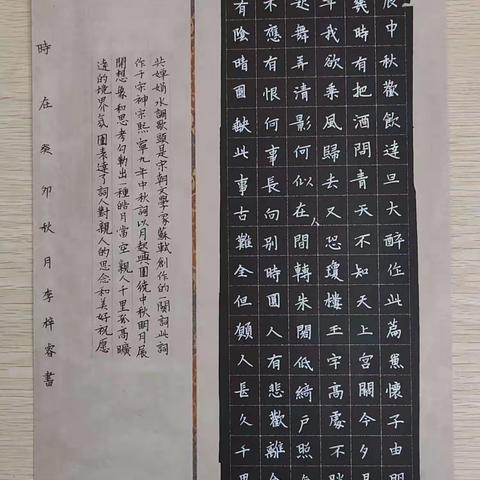 辰中秋歡飲達旦大醉作此篇兼懷子由明
幾時有把酒問青天不知天上宮闕今夕是
年我欲乘風歸去又恐瓊樓玉宇高處不勝
起舞弄清影何似在人間轉朱閣低綺戶照
不應有恨何事長向別時圓人有悲歡離合
有陰晴圓缺此事古難全但願人長久千里
共嬋娟水調歌頭是宋朝文學家蘇軾創作的一闋詞此詞
作于宋神宗熙寧九年中秋詞以月起興圍繞中秋明月展
開想象和思考勾勒出一種皓月當空親人千里孤高曠
遠的境界氛圍表達了詞人對親人的思念和美好祝愿
時在癸卯秋月李梓睿書